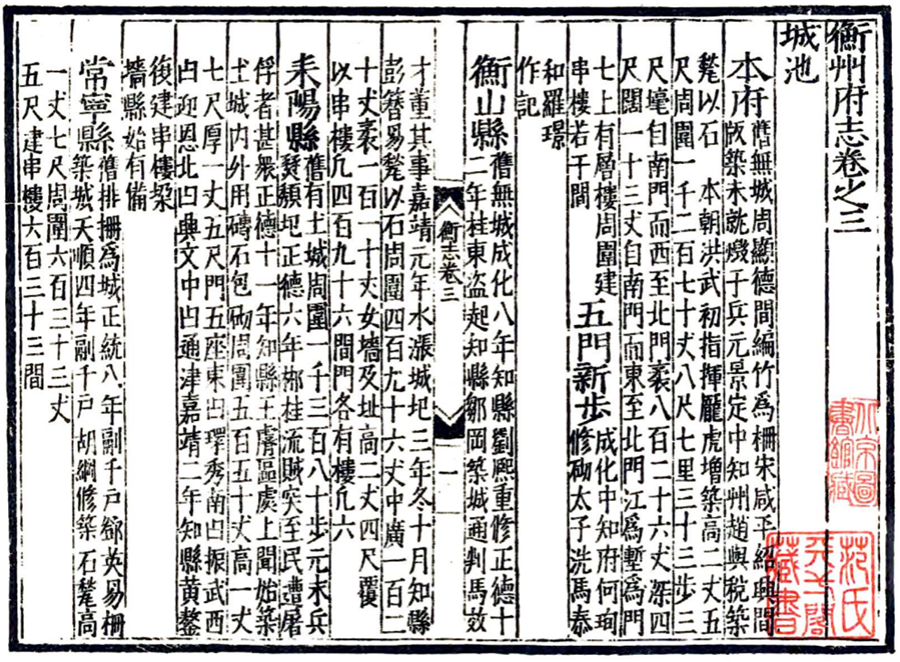 衡州府志卷之三
城池
本府
舊無城周顯德間編竹爲柵宋咸平紹興間
改築未就燬于兵元景定中知州趙與稅築
甃以石　本朝洪武初指揮龎虎增築高二丈五
尺周圍一千二百七十丈八尺七里三十三步三
尺壕自南門而西至北門袤八百二十六丈深四
尺闊一十三丈自南門而東至北門江爲塹爲門
七上有層樓周圍建
串樓若干間
五門新步
成化中知府何珣
修砌太子洗馬泰
和羅璟
作記
衡山縣
舊無城成化八年知縣劉熙重修正德十
二年桂東盜起知縣鄒岡築城通判馬效
衡志卷三
一
才董其事嘉靖元年水漲城圮三年冬十月知縣
彭簪易甃以石周圍四百九十六丈中廣一百二
十丈袤一百一十丈女墻及址高二丈四尺覆
以串樓凢四百九十六間門各有樓凢六
耒陽縣
舊有土城周圍一千三百八十步元末兵
燹頹圮正德六年郴桂流賊突至民遭屠
俘者甚衆正德十一年知縣王膚區處上聞始築
土城内外用磚石包砌周圍五百五十丈高一丈
七尺厚一丈五尺門五座東曰環秀南曰振武西
曰迎恩北曰興文中曰通津嘉靖二年知縣黃鏊
復建串樓槩
墻縣始有備
常寧縣
舊排柵爲城正統八年副千戶鄧英易柵
築城天順四年副千戶胡綱修築石甃高
一丈七尺周圍六百三十三丈
五尺建串樓六百三十三間
北京圖
書館藏
范氏
天一閣
藏書